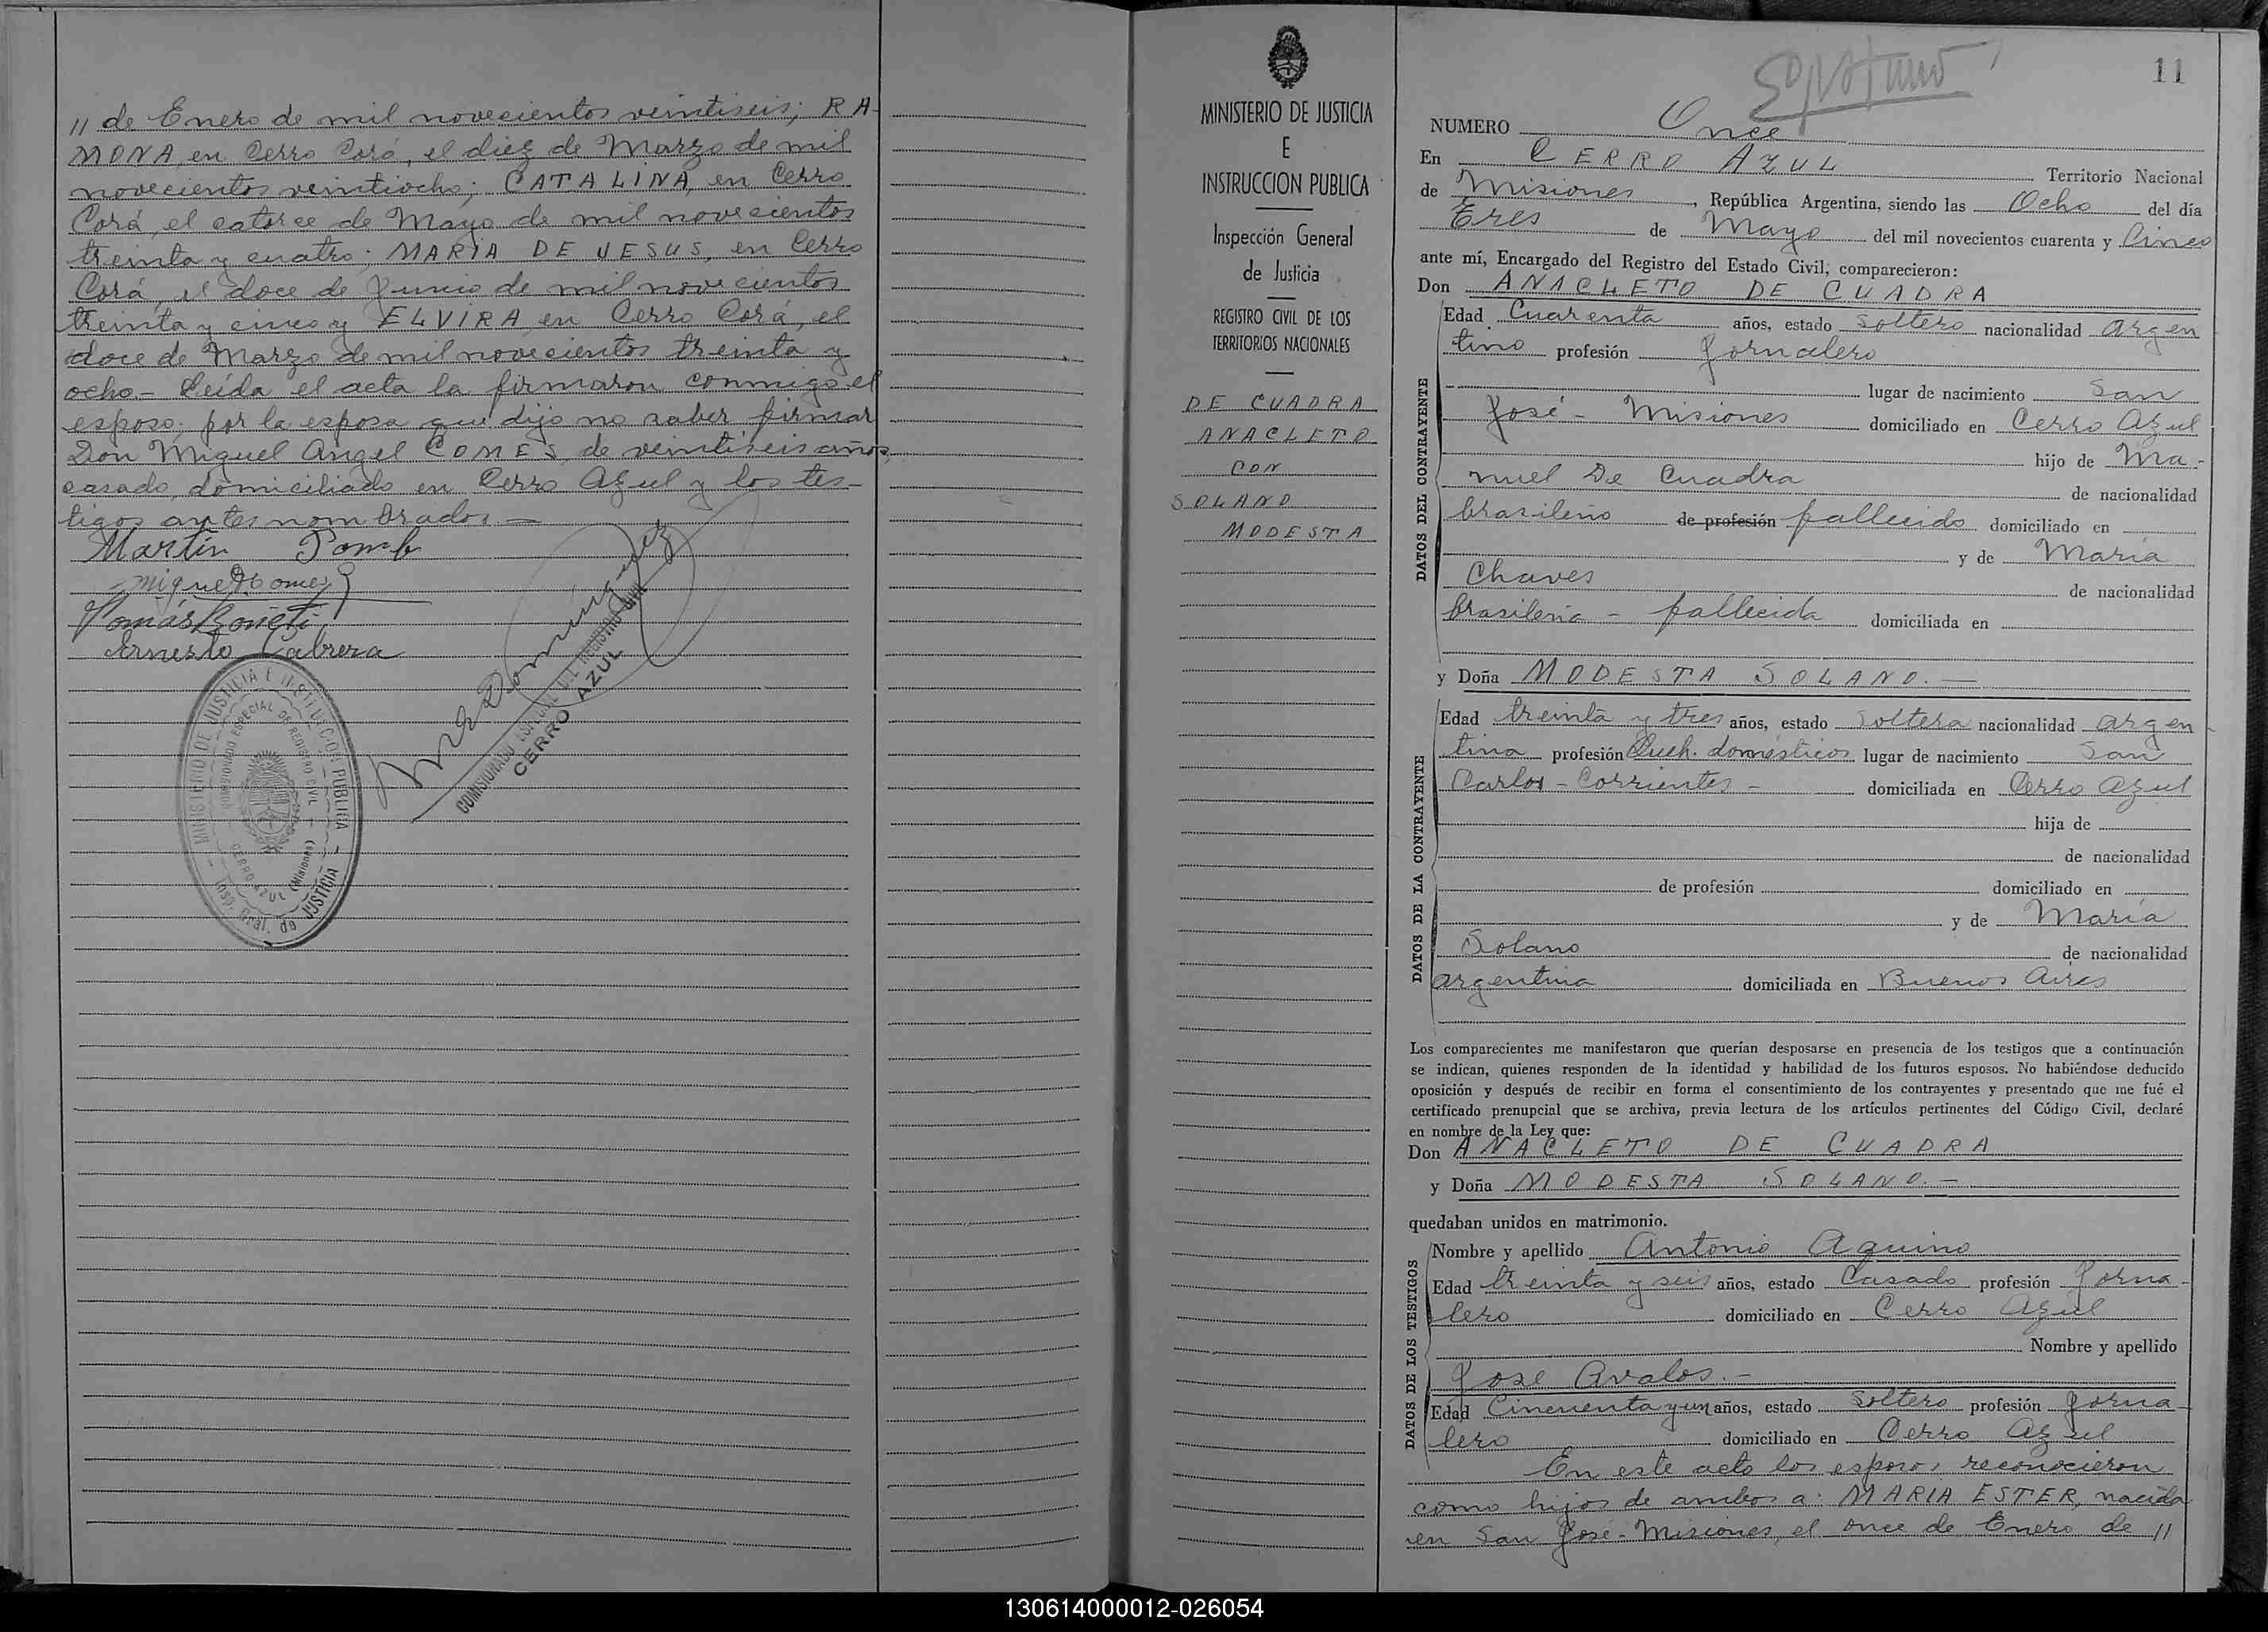 11 de Enero de mil novecientos veintiseis; RA-
MONA, en Cerro Corá, el diez de Marzo de mil
novecientos veintiocho; CATALINA, en Cerro
Corá, el catorce de Mayo de mil novecientos
treinta y cuatro; MARIA DE JESUS, en Cerro
Corá, el doce de Junio de mil novecientos
treinta y cinco y ELVIRA en Cerro Corá, el
doce de Marzo de mil novecientos treinta y
ocho.- Leída el acta la firmaron conmigo el
esposo; por la esposa que dijo no saber firmar
Don Miguel Angel COMES, de veintiseis años,
casado, domiciliado en Cerro Azul y los tes-
tigos antes nombrados.-
Martin
Miguel Gomes
Tomás Boneti
Ernesto Cabrera
COMISIONADO ESPECIAL DEL REGISTRO CIVIL
CERRO AZUL
MINISTERIO DE JUSTICIA E INSTRUCCION PUBLICA
COMISIONADO ESPECIAL DE REGISTRO CIVIL
CERRO AZUL (Misiones)
Insp. Gral. de JUSTICIA
MINISTERIO DE JUSTICIA
E
INSTRUCCION PUBLICA
Inspección General
de Justicia
REGISTRO CIVIL DE LOS
TERRITORIOS NACIONALES
DE CUADRA
ANACLETO
CON
SOLANO
MODESTA
11
NUMERO Once
En CERRO AZUL Territorio Nacional
de Misiones, República Argentina, siendo las Ocho del día
Tres de Mayo del mil novecientos cuarenta y Cinco
ante mí, Encargado del Registro del Estado Civil, comparecieron:
Don ANACLETO DE CUADRA
DATOS DEL CONTRAYENTE
Edad Cuarenta años, estado Soltero nacionalidad Argen
tino profesión Jornalero
lugar de nacimiento San
José - Misiones domiciliado en Cerro Azul
hijo de Ma-
nuel De Cuadra de nacionalidad
brasileño de profesión fallecido domiciliado en
y de María
Chaves de nacionalidad
brasileña - fallecida domiciliada en
y Doña MODESTA SOLANO.-
DATOS DE LA CONTRAYENTE
Edad treinta y tres años, estado Soltera nacionalidad Argen
tina profesión Queh. domésticos lugar de nacimiento San
Carlos - Corrientes - domiciliada en Cerro Azul
hija de
de nacionalidad
de profesión domiciliado en
y de María
Solano de nacionalidad
argentina domiciliada en Buenos Aires
Los comparecientes me manifestaron que querían desposarse en presencia de los testigos que a continuación
se indican, quienes responden de la identidad y habilidad de los futuros esposos. No habiéndose deducido
oposición y después de recibir en forma el consentimiento de los contrayentes y presentado que me fué el
certificado prenupcial que se archiva, previa lectura de los artículos pertinentes del Código Civil, declaré
en nombre de la Ley que:
Don ANACLETO DE CUADRA
y Doña MODESTA SOLANO.-
quedaban unidos en matrimonio.
DATOS DE LOS TESTIGOS
Nombre y apellido Antonio Aquino
Edad treinta y seis años, estado Casado profesión Jorna-
lero domiciliado en Cerro Azul
Nombre y apellido
José Avalos.-
Edad Cincuenta y un años, estado Soltero profesión Jorna-
lero domiciliado en Cerro Azul
En este acto los esposos reconocieron
como hijos de ambos a: MARIA ESTER, nacida
en San José-Misiones, el once de Enero de 11
130614000012-026054